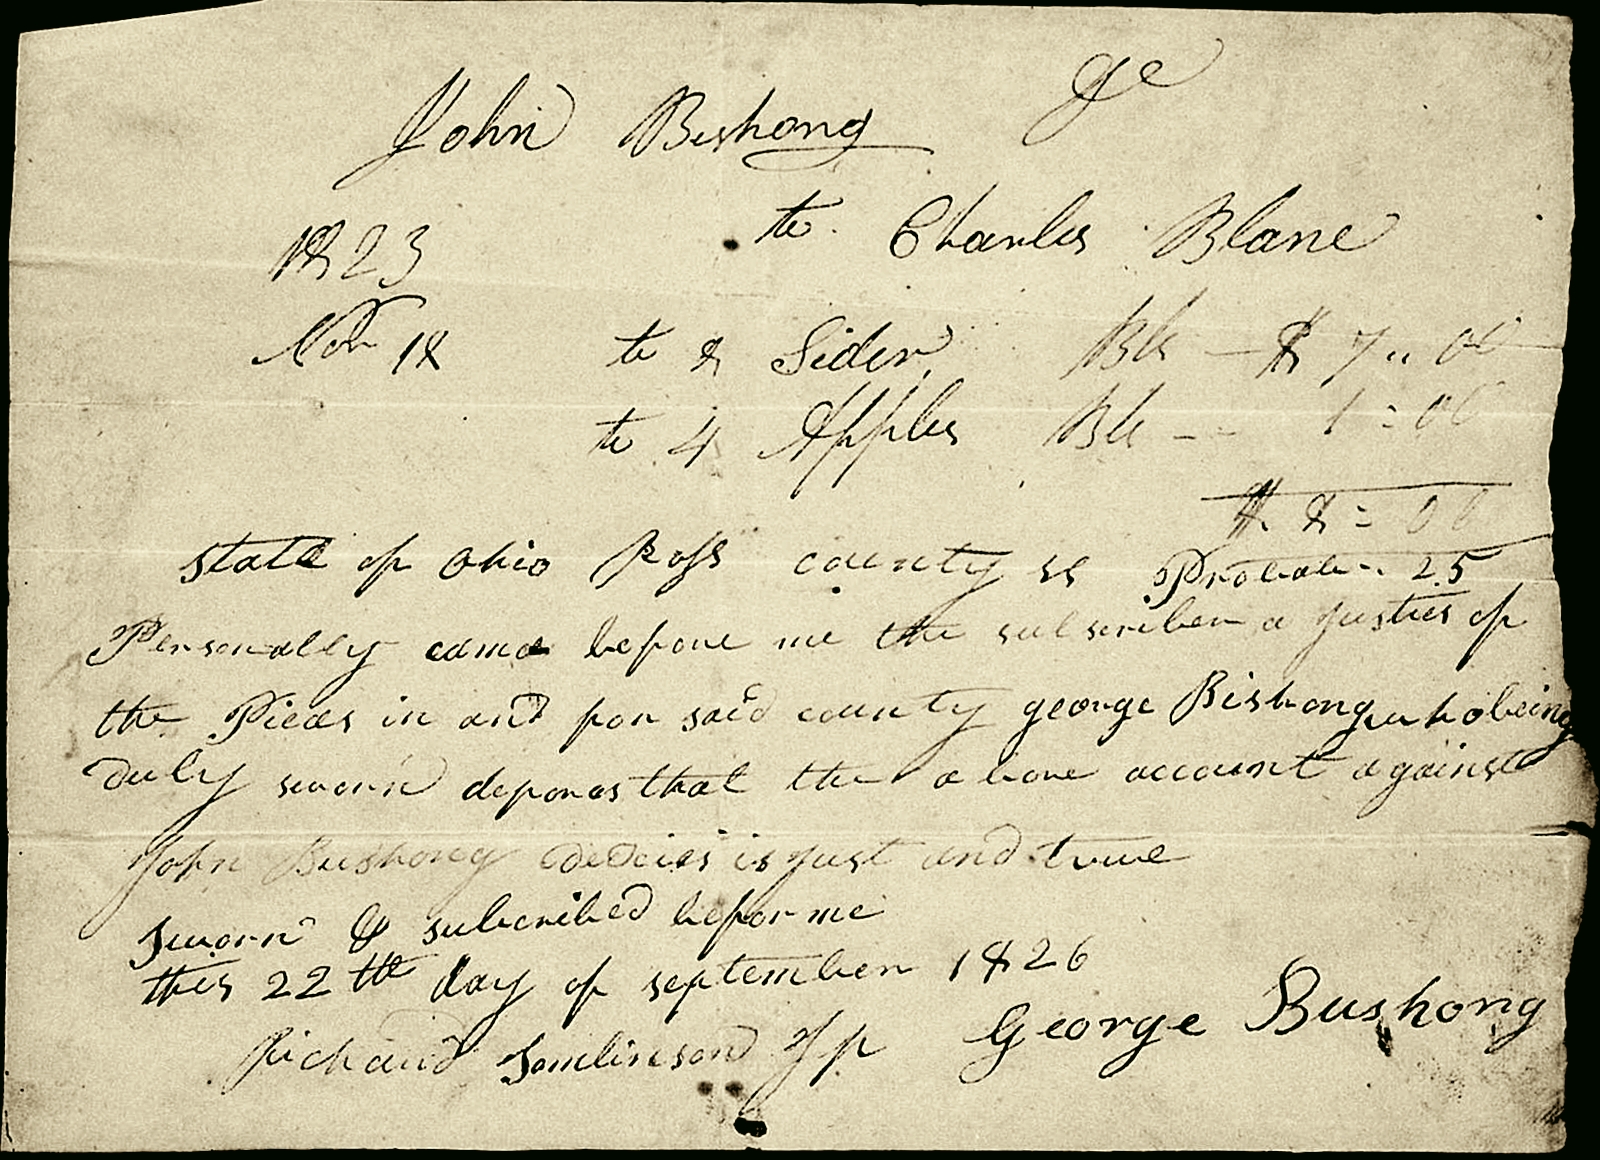 John Bishong
to Charles Blane
1823
Nov 18 to 8 Sider Bls — $ 7 " 00
to 4 Apples Bls - - 1 = 00
$ 8 = 00
state of Ohio Ross county ss Probate .. 25
Personally came before me the subscriber a justies of
the Pieces in and for said county george Bishong who being
duly sworn deposes that the above account against
John Bushong is just and true
sworn & subcribed befor me
this 22th day of september 1826
Richard Tomlinson Jp George Bushong